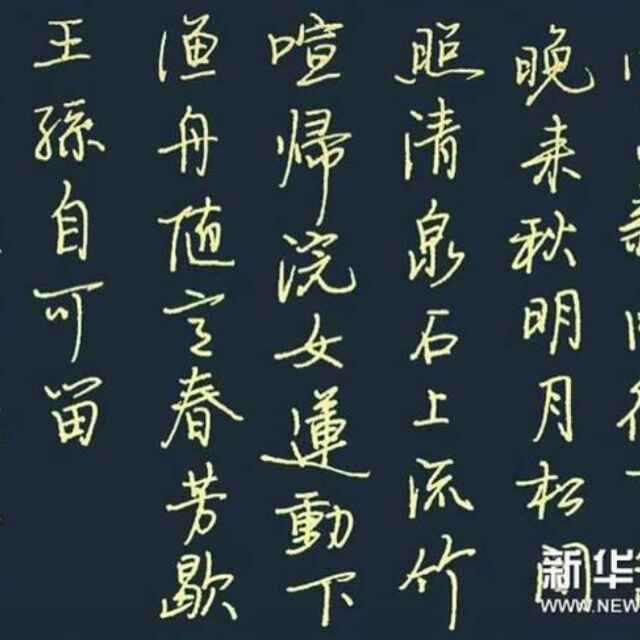 晚来秋明月松间
照清泉石上流竹
喧歸浣女運動下
渔舟随意春芳歇
王孫自可留
新华
WWW.NEW